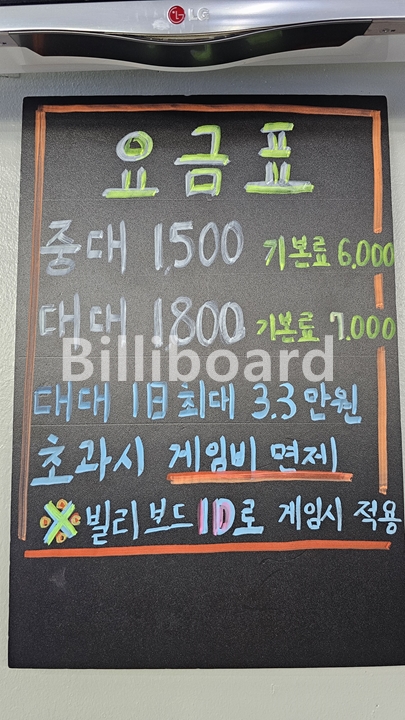 LG
요금표
중대 1,500 기본료 6,000
대대 1800 기본료 7.000
Billiboard
대대 1日 최대 3.3만원
초과시 게임비 면제
※ 빌리보드 ID로 게임시 적용